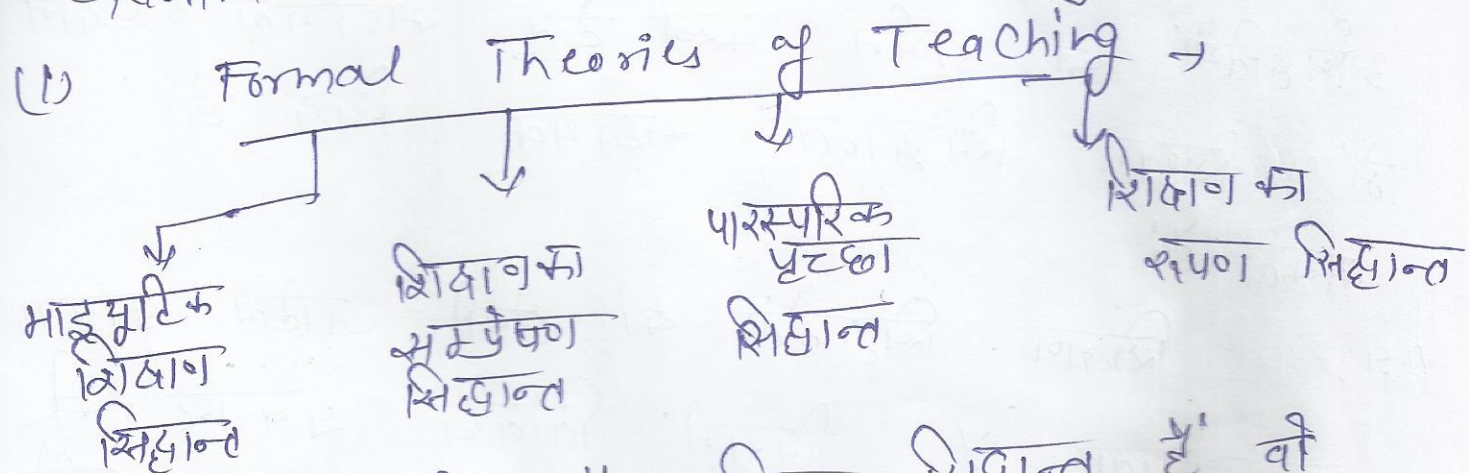 (1) Formal Theories of Teaching →
माइयूटिक
शिक्षण
सिद्धान्त
शिक्षण का
सम्प्रेषण
सिद्धान्त
पारस्परिक
पृच्छा
सिद्धान्त
शिक्षण का
रूपण सिद्धान्त
सिद्धान्त हैं वो